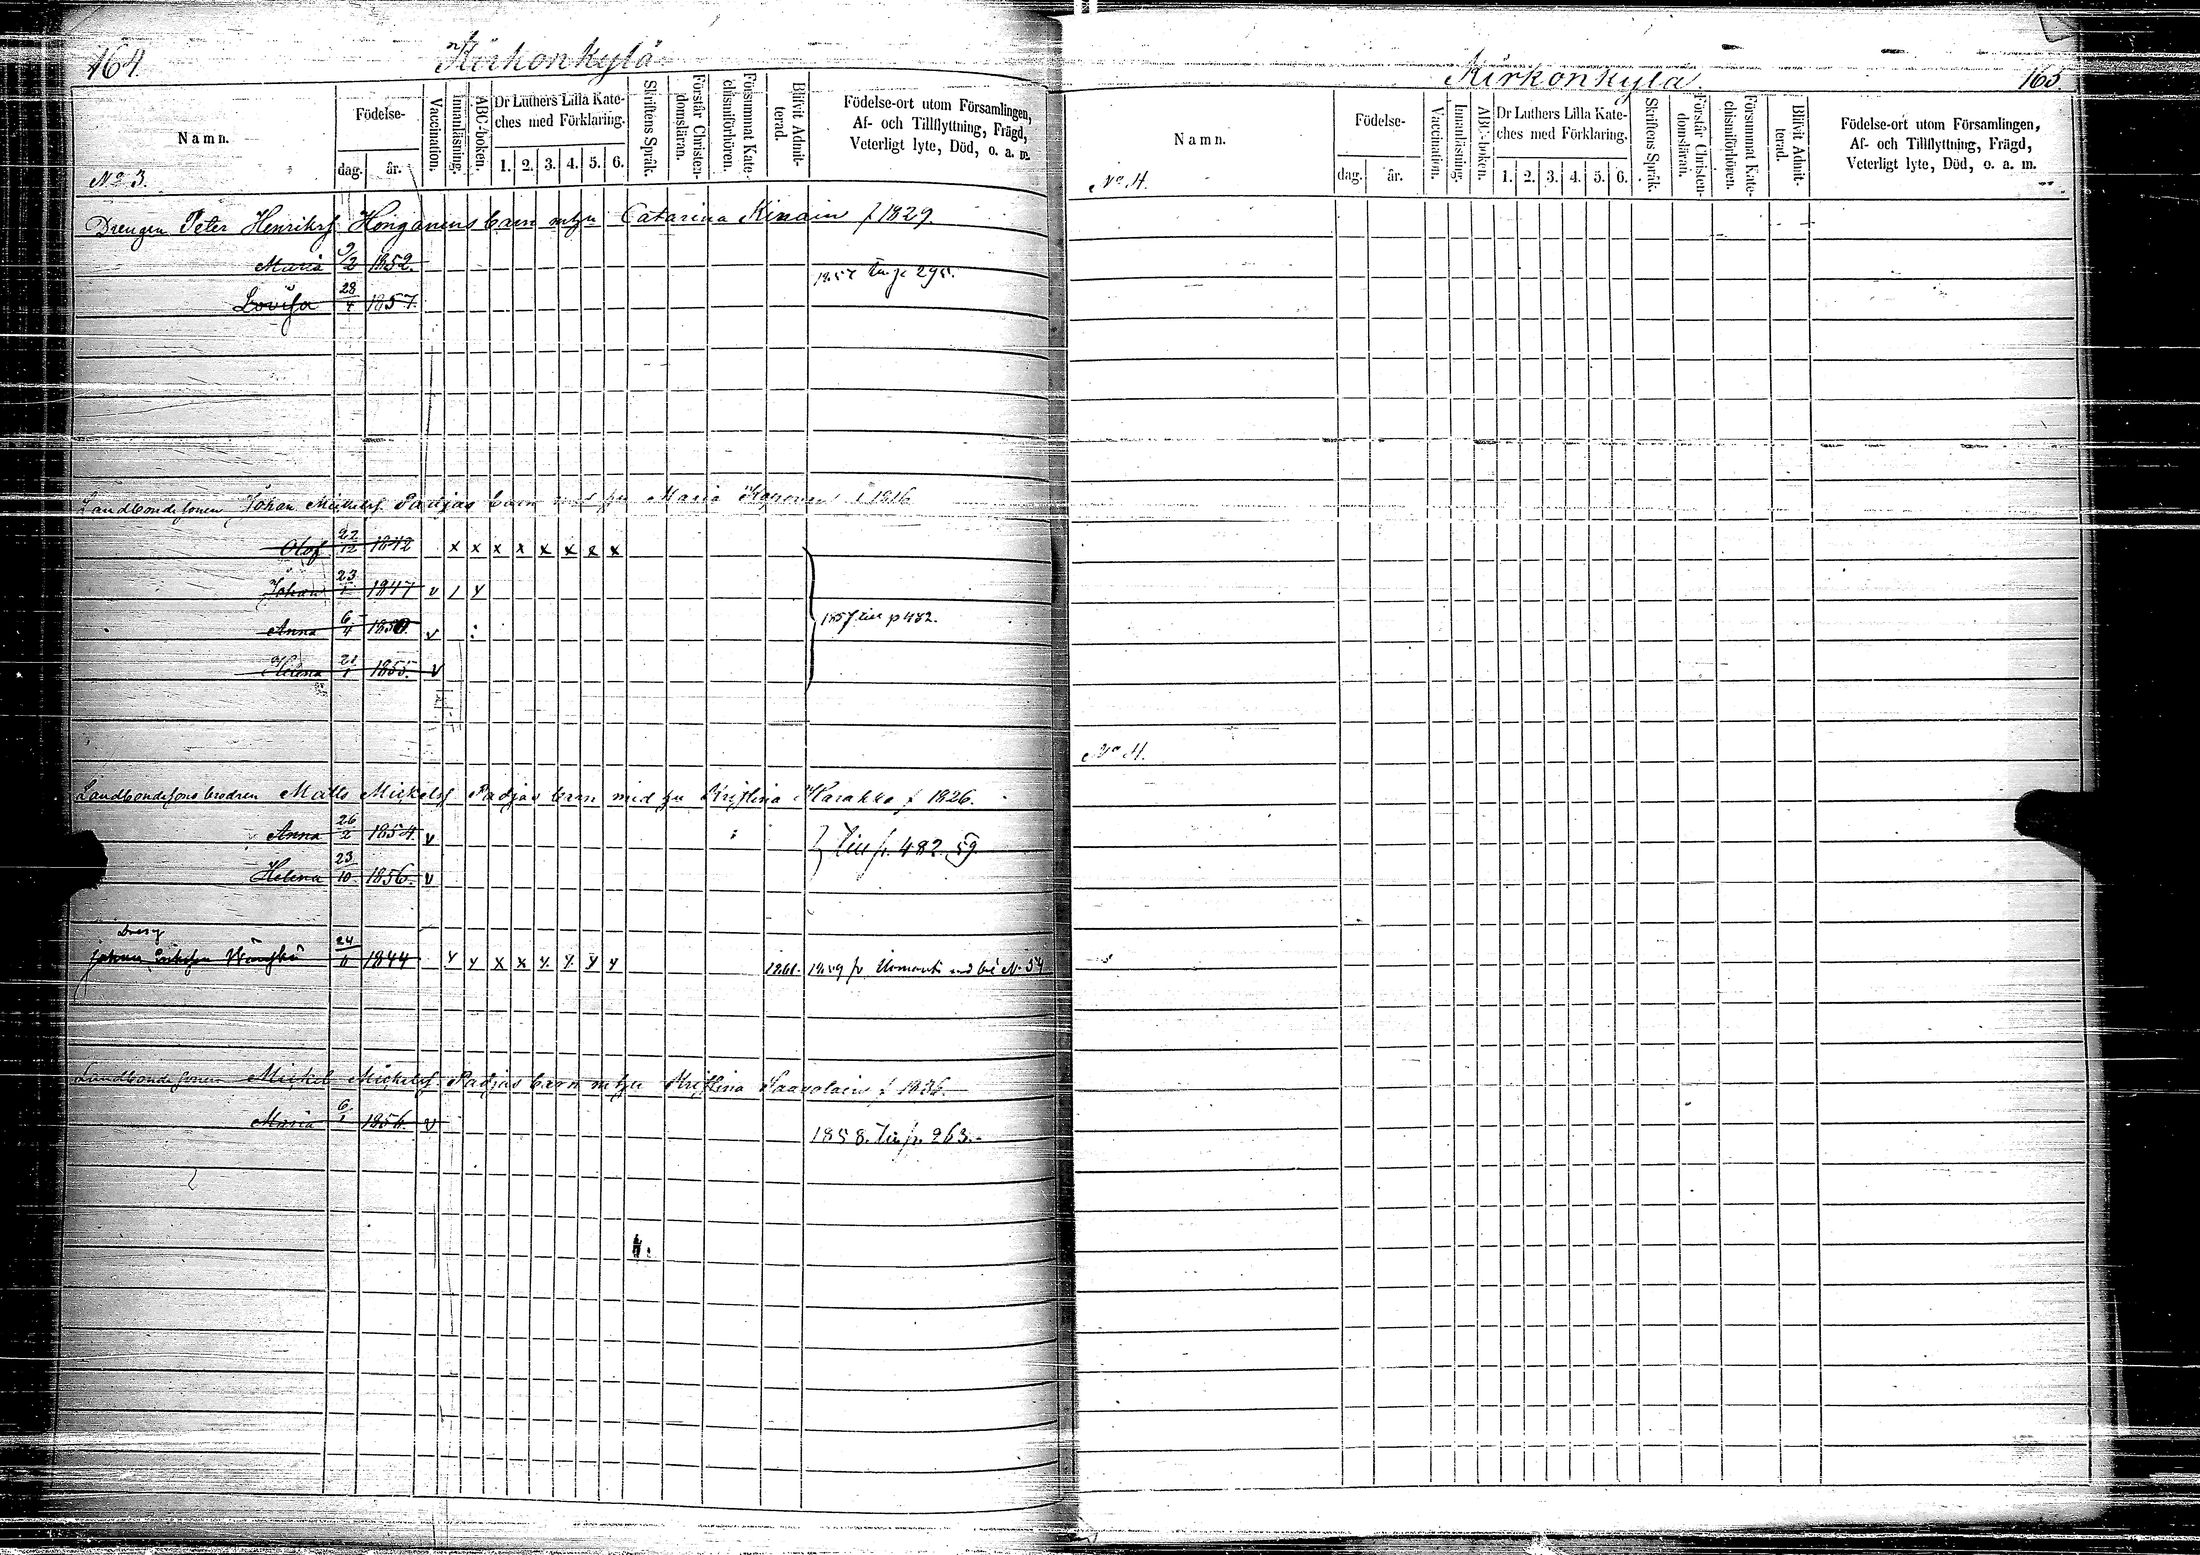 164
Kirkonkylä
Namn.
Födelse-
dag.
år.
Vaccination.
Innanläsning.
ABC-boken.
Dr Luthers Lilla Kate-
ches med Förklaring.
1. 2. 3. 4. 5. 6.
Skriftens Språk.
Förstår Christen-
domsläran.
Försummat Kate-
chismiförhören.
Blifvit Admit-
terad.
Födelse-ort utom Församlingen,
Af- och Tillflyttning, Frägd,
Veterligt lyte, Död, o. a. m.
No 3.
Drengen Peter Henrikss Honganens barn m hu Catarina Kinain f 1829.
Maria 9/2 1852.
1857 295.
Lovisa 28/4 1857.
Landbondesonen Johan Mickelss. Padjas barn med hu Maria f 1816
Olof 22/12 1842 x x x x x x x x
Johan 23/1 1847 v / y
Anna 6/4 1850. v
1857 p 482.
Helena 21/1 1855. v
Landbondesons brodren Matts Mickelss Padjas barn med hu Kristina Harakka f 1826.
Anna 26/2 1854. v
p. 482. 59.
Helena 23/10 1856. v
Dreng
Johan 24/6 1844 y y x x y. y. y y 1861. 1859 fr. N. 54
Landbondesonen Mickel Mickelss. Padjas barn m hu Kristina Saavolain f 1836.
Maria 6/1 1856. v
1858. p. 263.
Kirkonkylä.
165.
Namn.
Födelse-
dag.
år.
Vaccination.
Innanläsning.
ABC-boken.
Dr Luthers Lilla Kate-
ches med Förklaring.
1. 2. 3. 4. 5. 6.
Skriftens Språk.
Förstår Christen-
domsläran.
Försummat Kate-
chismiförhören.
Blifvit Admit-
terad.
Födelse-ort utom Församlingen,
Af- och Tillflyttning, Frägd,
Veterligt lyte, Död, o. a. m.
No 4.
No 4.